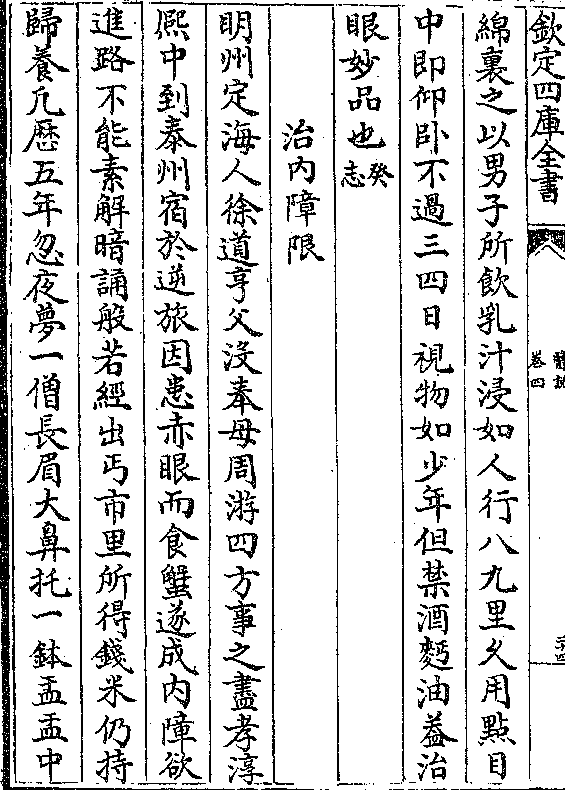 欽定四庫全書
醫説
卷四
二十四
綿裹之以男子所飲乳汁浸如人行八九里久用點目
中即仰卧不過三四日視物如少年但禁酒麪油葢治
眼妙品也癸志
治内障眼
明州定海人徐道亨父沒奉母周游四方事之盡孝淳
熈中到泰州宿於逆旅因患赤眼而食蟹遂成内障欲
進路不能素解暗誦般若經出丐市里所得錢米仍持
歸養凢厯五年忽夜夢一僧長眉大鼻托一鉢盂盂中